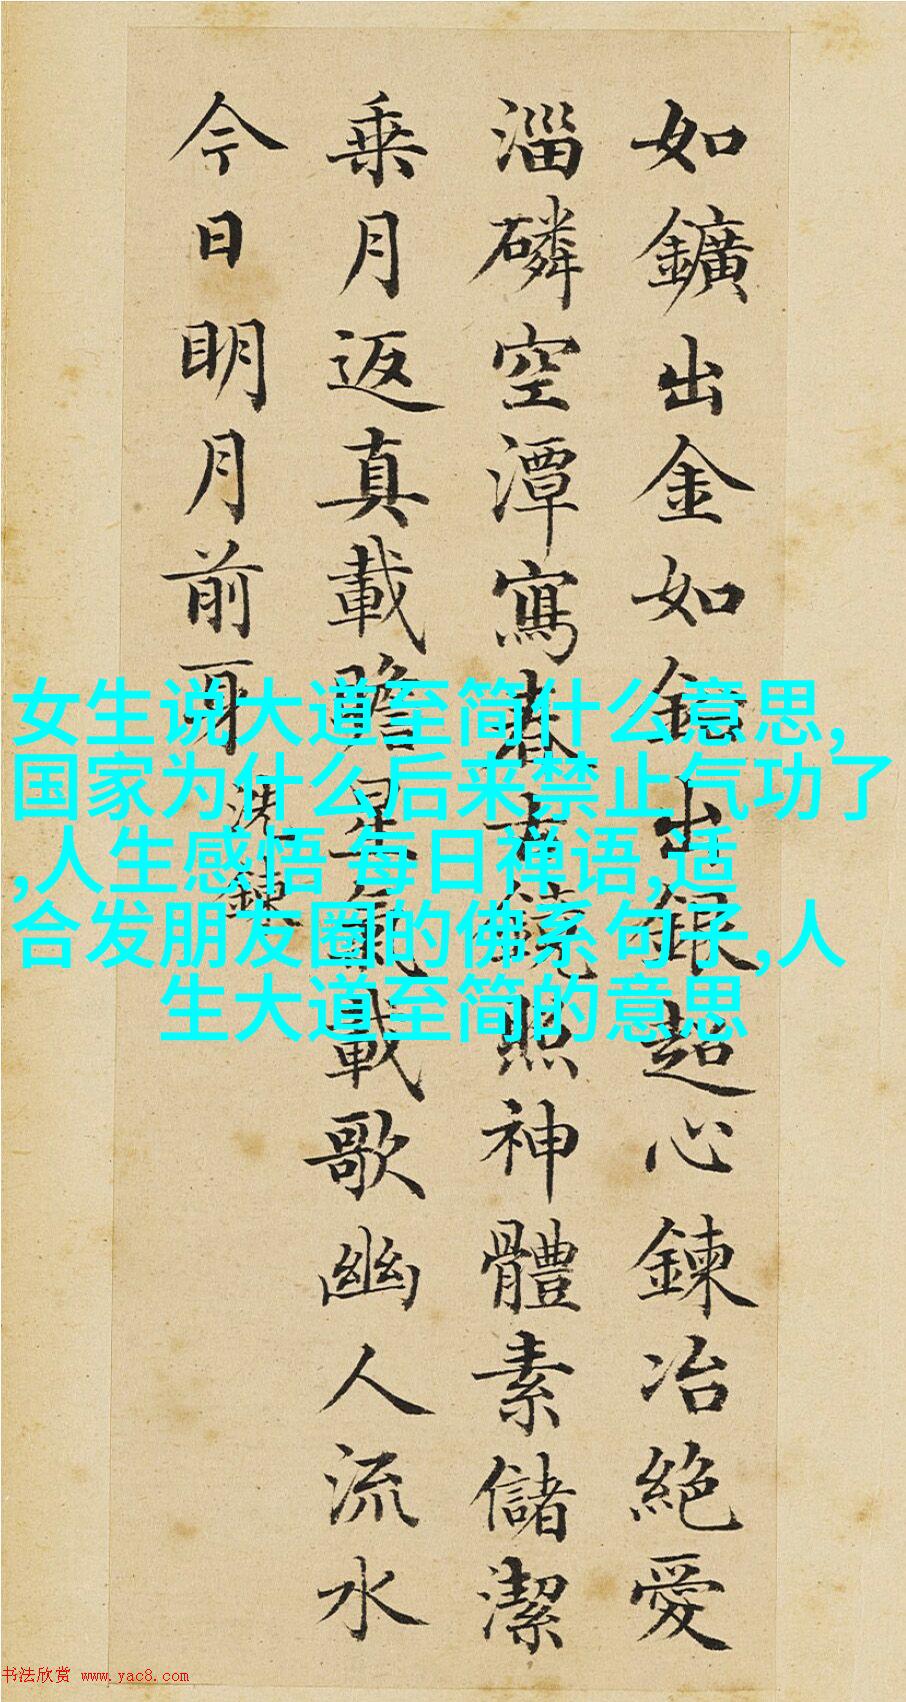 如鑛出金如鉛出銀超心鍊冶絕愛
淄磷空潭寫春古鏡照神體素儲潔
乗月返真載瞻星氣載歌幽人流水
今日明月前身
洗鍊
女生说大道至简什么意思,
国家为什么后来禁止气功了
,人生感悟 每日禅语,适
合发朋友圈的佛系句子,人
生大道至简的意思
书法欣赏 www.yac8.com